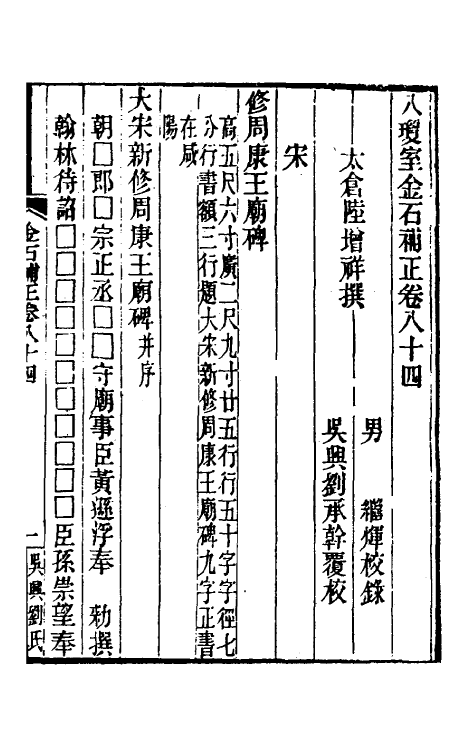 八瓊室金石補正卷八十四
太倉陸增祥撰
男　繼煇校錄
吳興劉承幹覆校
宋
修周康王廟碑
高五尺六寸廣二尺九寸廿五行行五十字字徑七
分行書額三行題大宋新修周康王廟碑九字正書
在咸
陽
大宋新修周康王廟碑并序
朝□郎□宗正丞□□守廟事臣黃遜浮奉　勑撰
翰林待詔□□□□□□□□□□□臣孫崇望奉
金石補正卷八十四
一
吳興劉氏